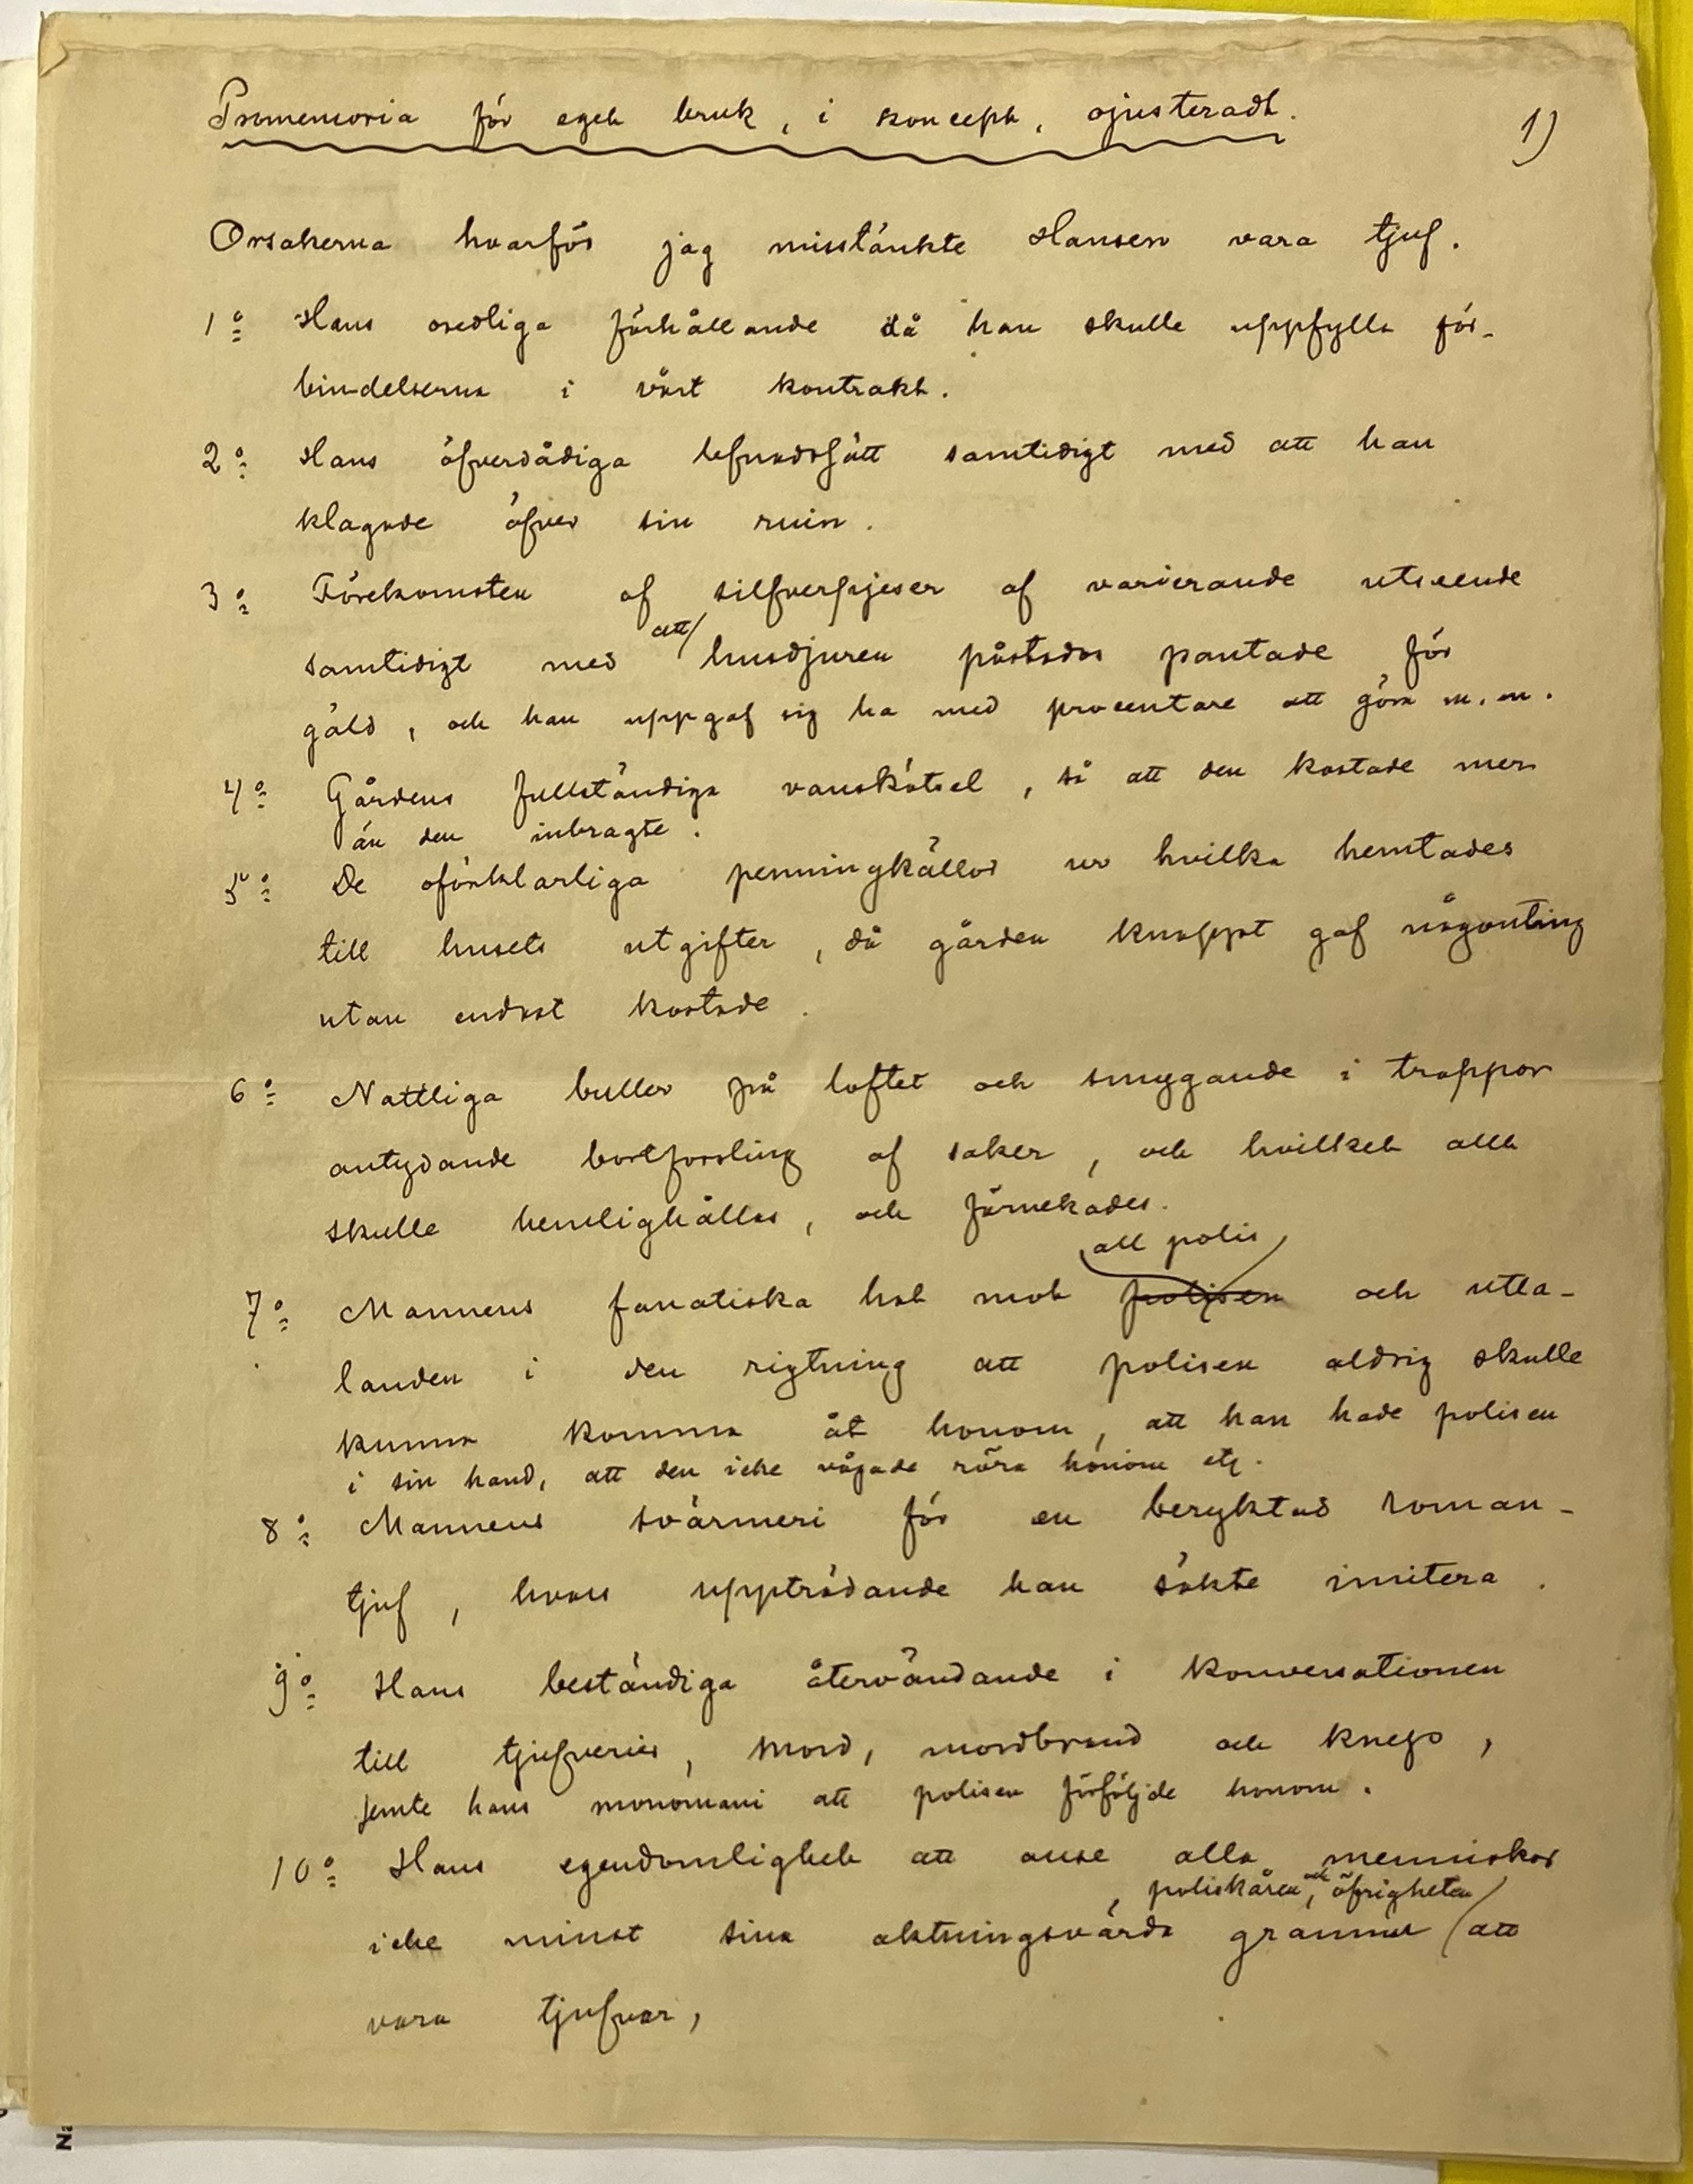 Promemoria för eget bruk, i koncept, ojusteradt.
1)
Orsakerna hvarför jag misstänkte Hansen vara tjuf.
1o Hans osedliga förhållande då han skulle uppfylla för-
bindelserna i vårt kontrakt.
2o Hans öfverdådiga lefnadssätt samtidigt med att han
klagade öfver sin ruin.
3o Förekomsten af silfverpjeser af varierande utseende
att/
samtidigt med husdjuren påstodos pantade för
gäld, och han uppgaf sig ha med procentare att göra m.m.
4o Gårdens fullständiga vanskötsel, så att den kostade mer
än den inbragte.
5o De oförklarliga penningkällor ur hvilka hemtades
till husets utgifter, då gården knappt gaf någonting
utan endast kostade.
6o Nattliga buller på loftet och smygande i trappor
antydande bortforsling af saker, och hvilket allt
skulle hemlighållas, och förnekades.
all polis
7o Mannens fanatiska hat mot polisen och utta-
landen i den rigtning att polisen aldrig skulle
kunna komma åt honom, att han hade polisen
i sin hand, att den icke vågade röra honom etc.
8o Mannens svärmeri för en beryktad roman-
tjuf, hvars uppträdande han sökte imitera.
9o Hans beständiga återvändande i konversationen
till tjufverier, mord, mordbrand och knep,
jemte hans monomani att polisen förföljde honom.
10o Hans egendomlighet att anse alla menniskor
, poliskåren, och öfrigheten/
icke minst sina aktningsvärda grannar att
vara tjufvar,